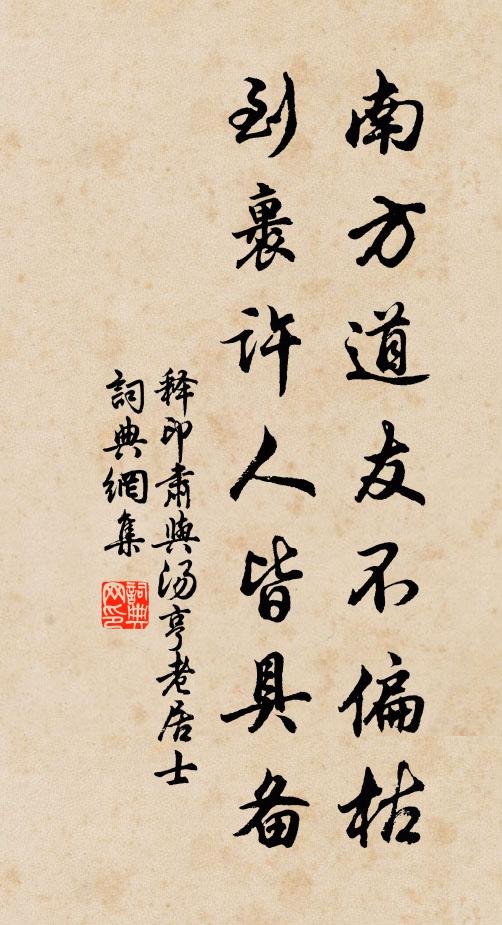 南方道友不偏枯
到裏許人皆具备
释印肃與汤亨老居士
詞典網集
詞典网印